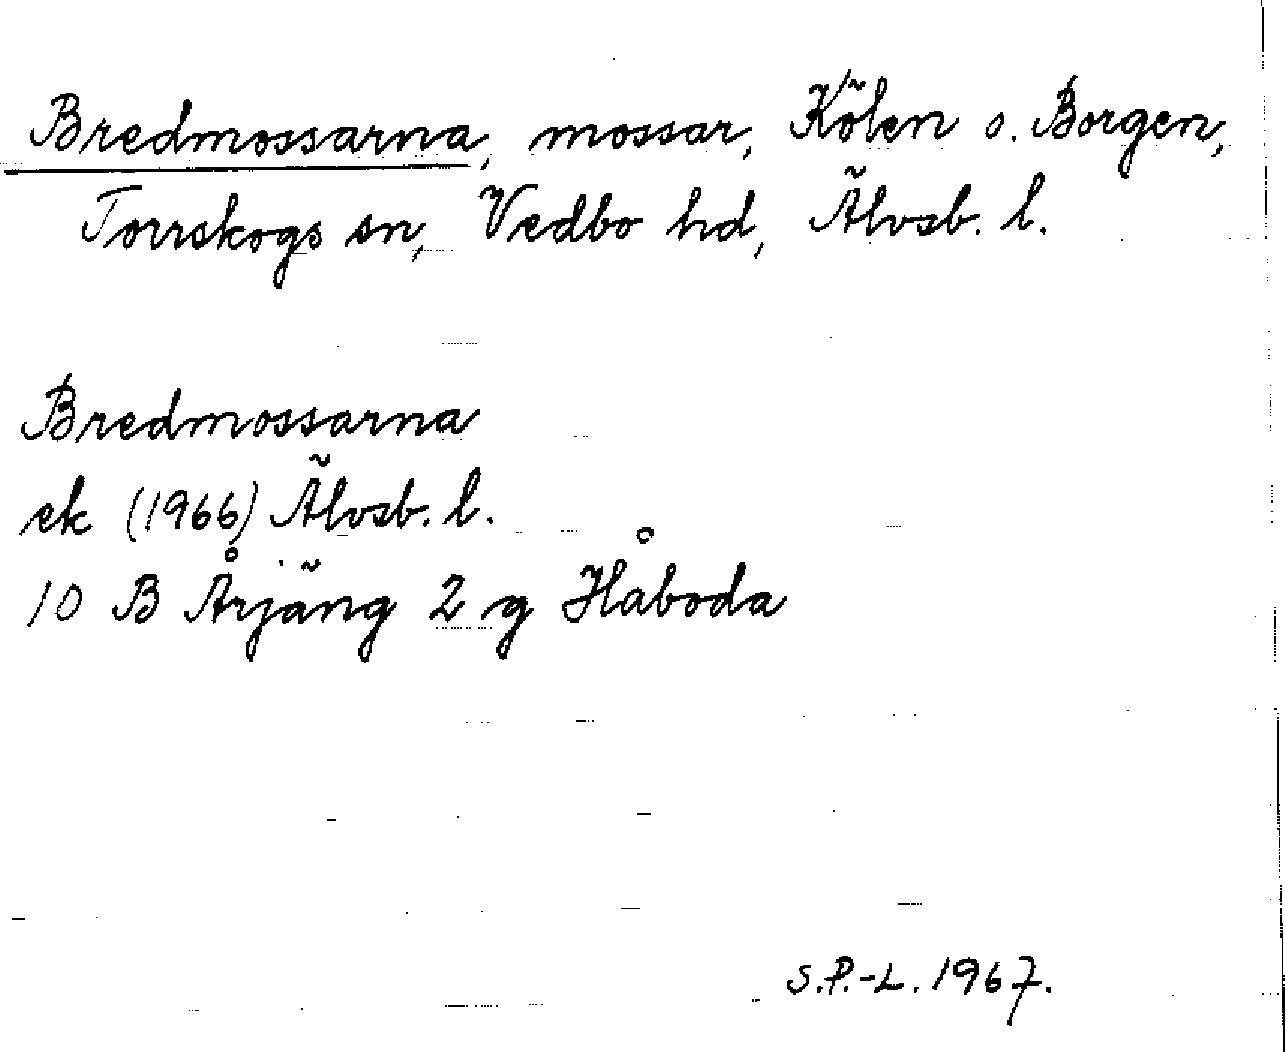 Bredmossarna, mossar, Kölen o. Borgen,
Torrskogs sn, Vedbo hd, Älvsb. l.
Bredmossarna
ek (1966) Älvsb. l.
10 B Årjäng 2 g Håboda
S.P.-L. 1967.